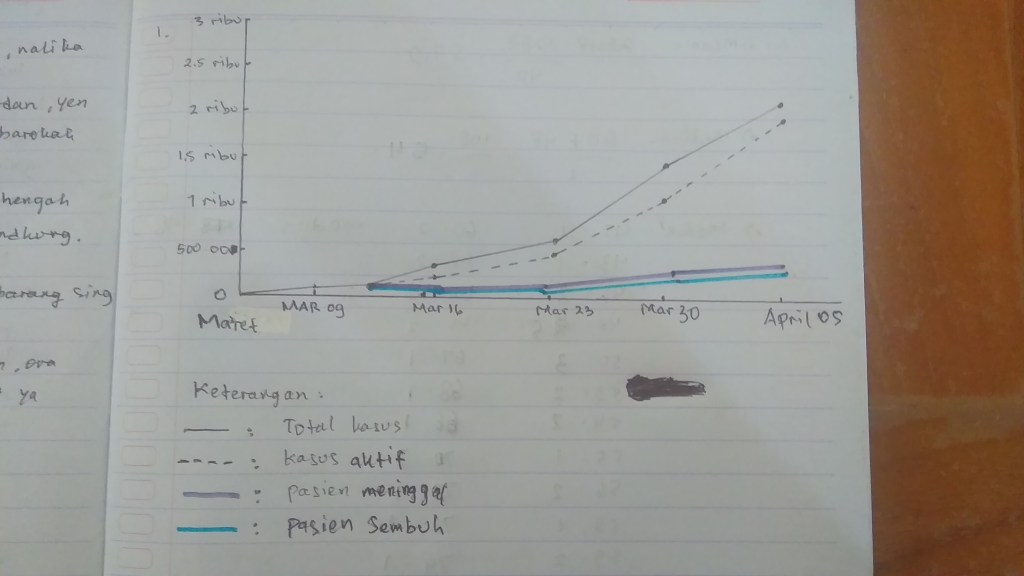 , nalika
dan, yen
barokah
hengah
ndhung.
barang sing
, ora
ya
1.
3 ribu
2.5 ribu
2 ribu
1.5 ribu
1 ribu
500 000
0
MAR 09
Mar 16
Mar 23
Mar 30
April 05
Maret
Keterangan :
: Total kasus
: kasus aktif
: pasien meninggal
: pasien Sembuh